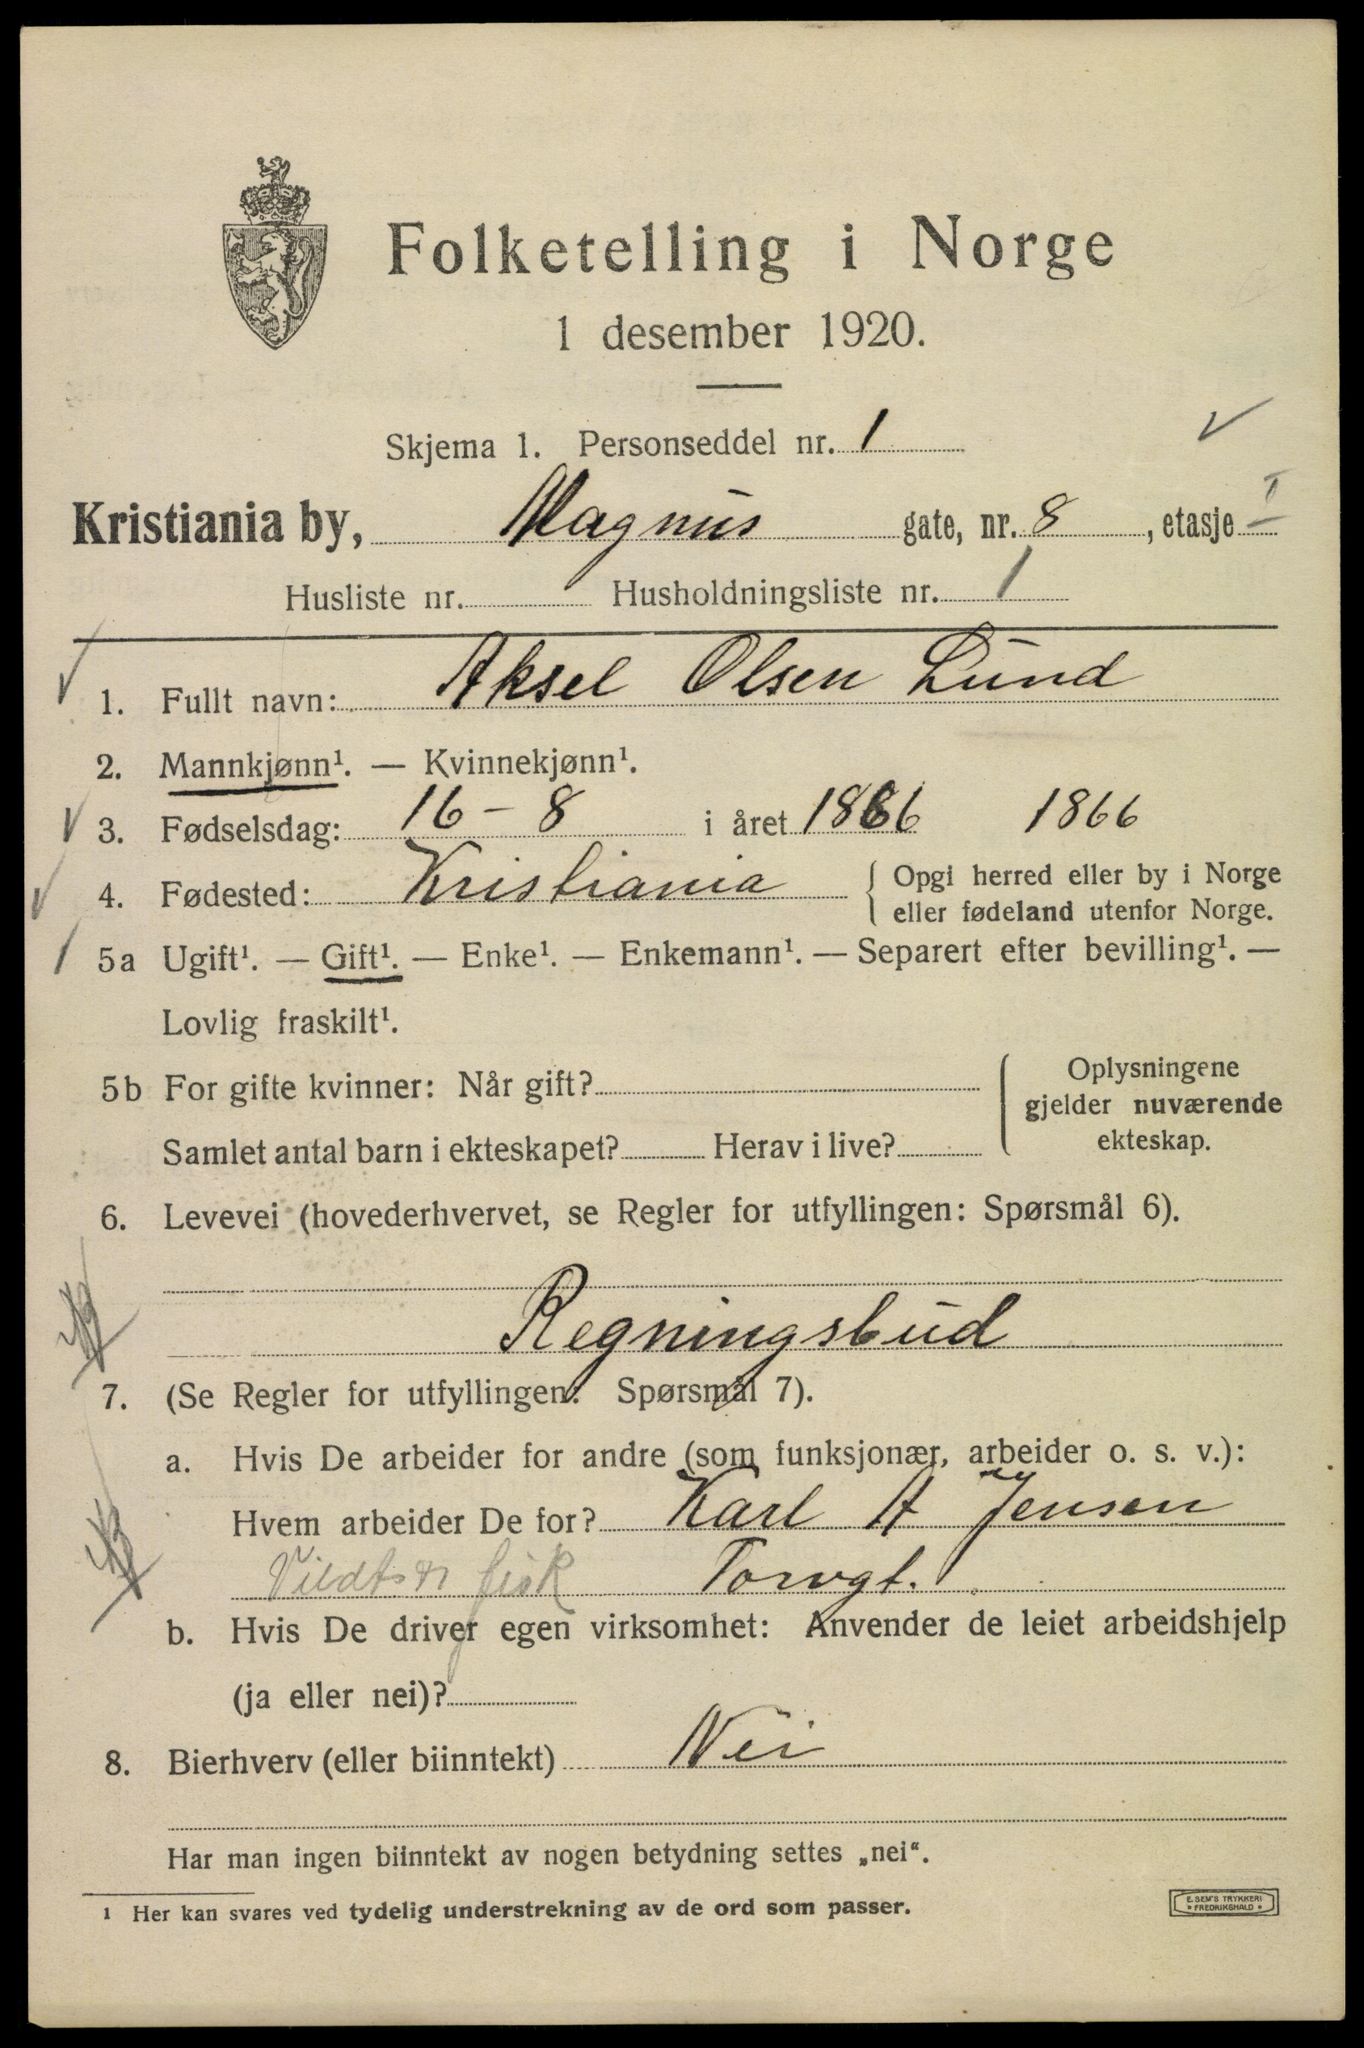 Folketelling i Norge
1 desember 1920.
Skjema 1. Personseddel nr. 1
Kristiania by, Magnus gate, nr. 8, etasje I
Husliste nr. Husholdningsliste nr. 1
1. Fullt navn: Aksel Olsen Lund
2. Mannkjønn¹. — Kvinnekjønn¹.
3. Fødselsdag: 16 – 8 i året 1866 1866
4. Fødested: Kristiania { Opgi herred eller by i Norge
eller fødeland utenfor Norge.
5a Ugift¹. — Gift¹. — Enke¹. — Enkemann¹. — Separert efter bevilling¹. —
Lovlig fraskilt¹.
5b For gifte kvinner: Når gift?
Samlet antal barn i ekteskapet? Herav i live?
Oplysningene
gjelder nuværende
ekteskap.
6. Levevei (hovederhvervet, se Regler for utfyllingen: Spørsmål 6).
Regningsbud
7. (Se Regler for utfyllingen. Spørsmål 7).
a. Hvis De arbeider for andre (som funksjonær, arbeider o. s. v.):
Hvem arbeider De for? Karl A Jensen
Vildt fisk Torvgt.
b. Hvis De driver egen virksomhet: Anvender de leiet arbeidshjelp
(ja eller nei)?
8. Bierhverv (eller biinntekt) Nei
Har man ingen biinntekt av nogen betydning settes „nei“.
¹ Her kan svares ved tydelig understrekning av de ord som passer.
E. SEM'S TRYKKERI
* FREDRIKSHALD *